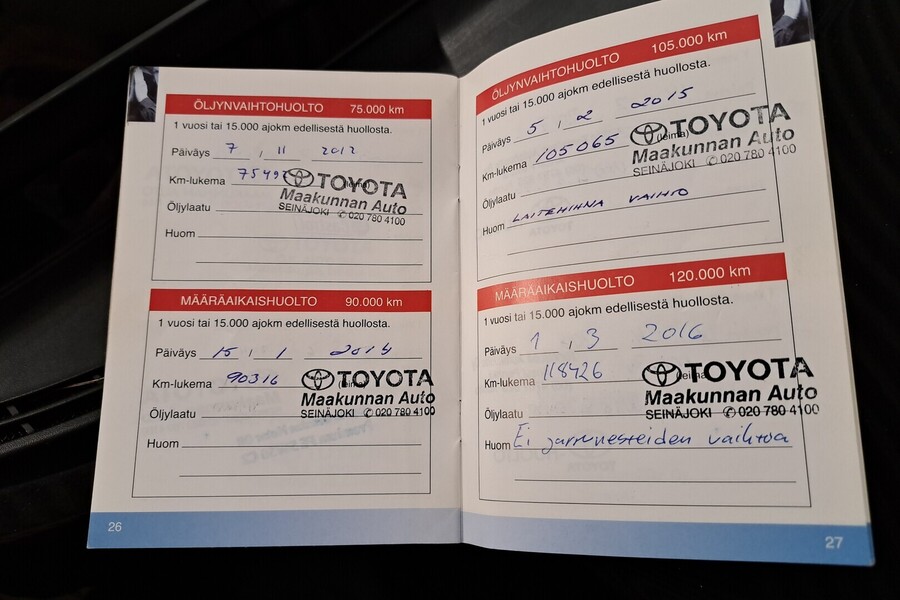 ÖLJYNVAIHTOHUOLTO 75.000 km
1 vuosi tai 15.000 ajokm edellisestä huollosta.
Päiväys 7 , 11 2012
Km-lukema 75497
TOYOTA
Maakunnan Auto
SEINÄJOKI ✆ 020 780 4100
Öljylaatu
Huom
MÄÄRÄAIKAISHUOLTO 90.000 km
1 vuosi tai 15.000 ajokm edellisestä huollosta.
Päiväys 15 , 1 2014
Km-lukema 90316 (leima)
TOYOTA
Maakunnan Auto
SEINÄJOKI ✆ 020 780 4100
Öljylaatu
Huom
26
ÖLJYNVAIHTOHUOLTO 105.000 km
1 vuosi tai 15.000 ajokm edellisestä huollosta.
Päiväys 5 , 2 2015
Km-lukema 105065 (leima)
TOYOTA
Maakunnan Auto
SEINÄJOKI ✆ 020 780 4100
Öljylaatu
Huom LAITEHINNA VAIHTO
MÄÄRÄAIKAISHUOLTO 120.000 km
1 vuosi tai 15.000 ajokm edellisestä huollosta.
Päiväys 1 , 3 2016
Km-lukema 118426 (leima)
TOYOTA
Maakunnan Auto
SEINÄJOKI ✆ 020 780 4100
Öljylaatu
Huom Ei jarrunesteiden vaihtoa
27